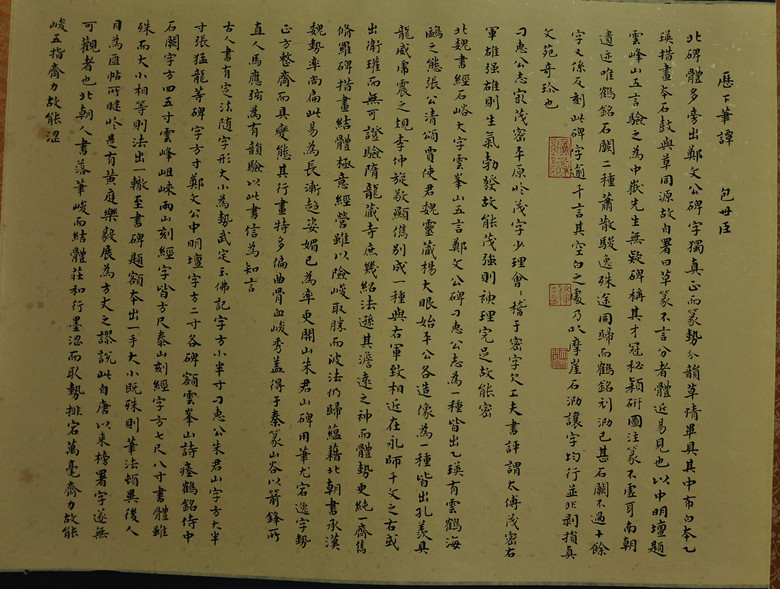 歷下筆譚 包世臣
北碑體多旁出鄭文公碑字獨真正而篆勢分韻草情畢具其中布白本乙
瑛措畫本石鼓與草同源故自署曰草篆不言分者體近易見也以中明壇題
雲峰山五言驗之為中嶽先生無疑碑稱其才冠秘穎研圖注篆不虛耳南朝
遺迹唯鶴銘石闕二種蕭散駿逸殊途同歸而鶴銘刓泐已甚石闕不過十餘
字又係反刻此碑字逾千言其空白之處乃以摩崖石泐讓字均行並非剝損真
文苑奇珍也
刁惠公志最茂密平原於茂字少理會會稽于密字欠工夫書評謂太傅茂密右
軍雄强雄則生氣勃發故能茂强則神理完足故能密
北魏書經石峪大字雲峯山五言鄭文公碑刁惠公志為一種皆出乙瑛有雲鶴海
鷗之態張公清頌賈使君魏靈藏楊大眼始平公各造像為一種皆出孔羨具
龍威虎震之規李仲旋敬顯儁別成一種與右軍致相近在永師千文之右或
出衛瓘而無可證驗隋龍藏寺庶幾紹法遜其淡遠之神而體勢更純一齊雋
脩羅碑措畫結體極意經營雖以險峻取勝而波法仍歸蘊藉北朝書承漢
魏勢率尚扁此易為長漸趨姿媚已為率更開山朱君山碑用筆尤宕逸字勢
正方整齊而具變態其行畫特多偏曲骨血峻秀蓋得于秦篆山谷以箭鋒所
直人馬應弦為有韻驗以此書信為知言
古人書有定法隨字形大小為勢武定玉佛記字方小半寸刁惠公朱君山字方大半
寸張猛龍等碑字方寸鄭文公中明壇字方二寸各碑額雲峯山詩瘞鶴銘侍中
石闕字方四五寸雲峰岨崍兩山刻經字皆方尺泰山刻經字方七尺八寸書體雖
殊而大小相等則法出一轍至書碑題額本出一手大小既殊則筆法頓異後人
目為匾帖所眯於是有黃庭樂毅展為方丈之謬說此自唐以來榜署字遂無
可觀者也北朝人書落筆峻而結體莊和行墨澀而取勢排宕萬毫齊力故能
峻五指齊力故能澀